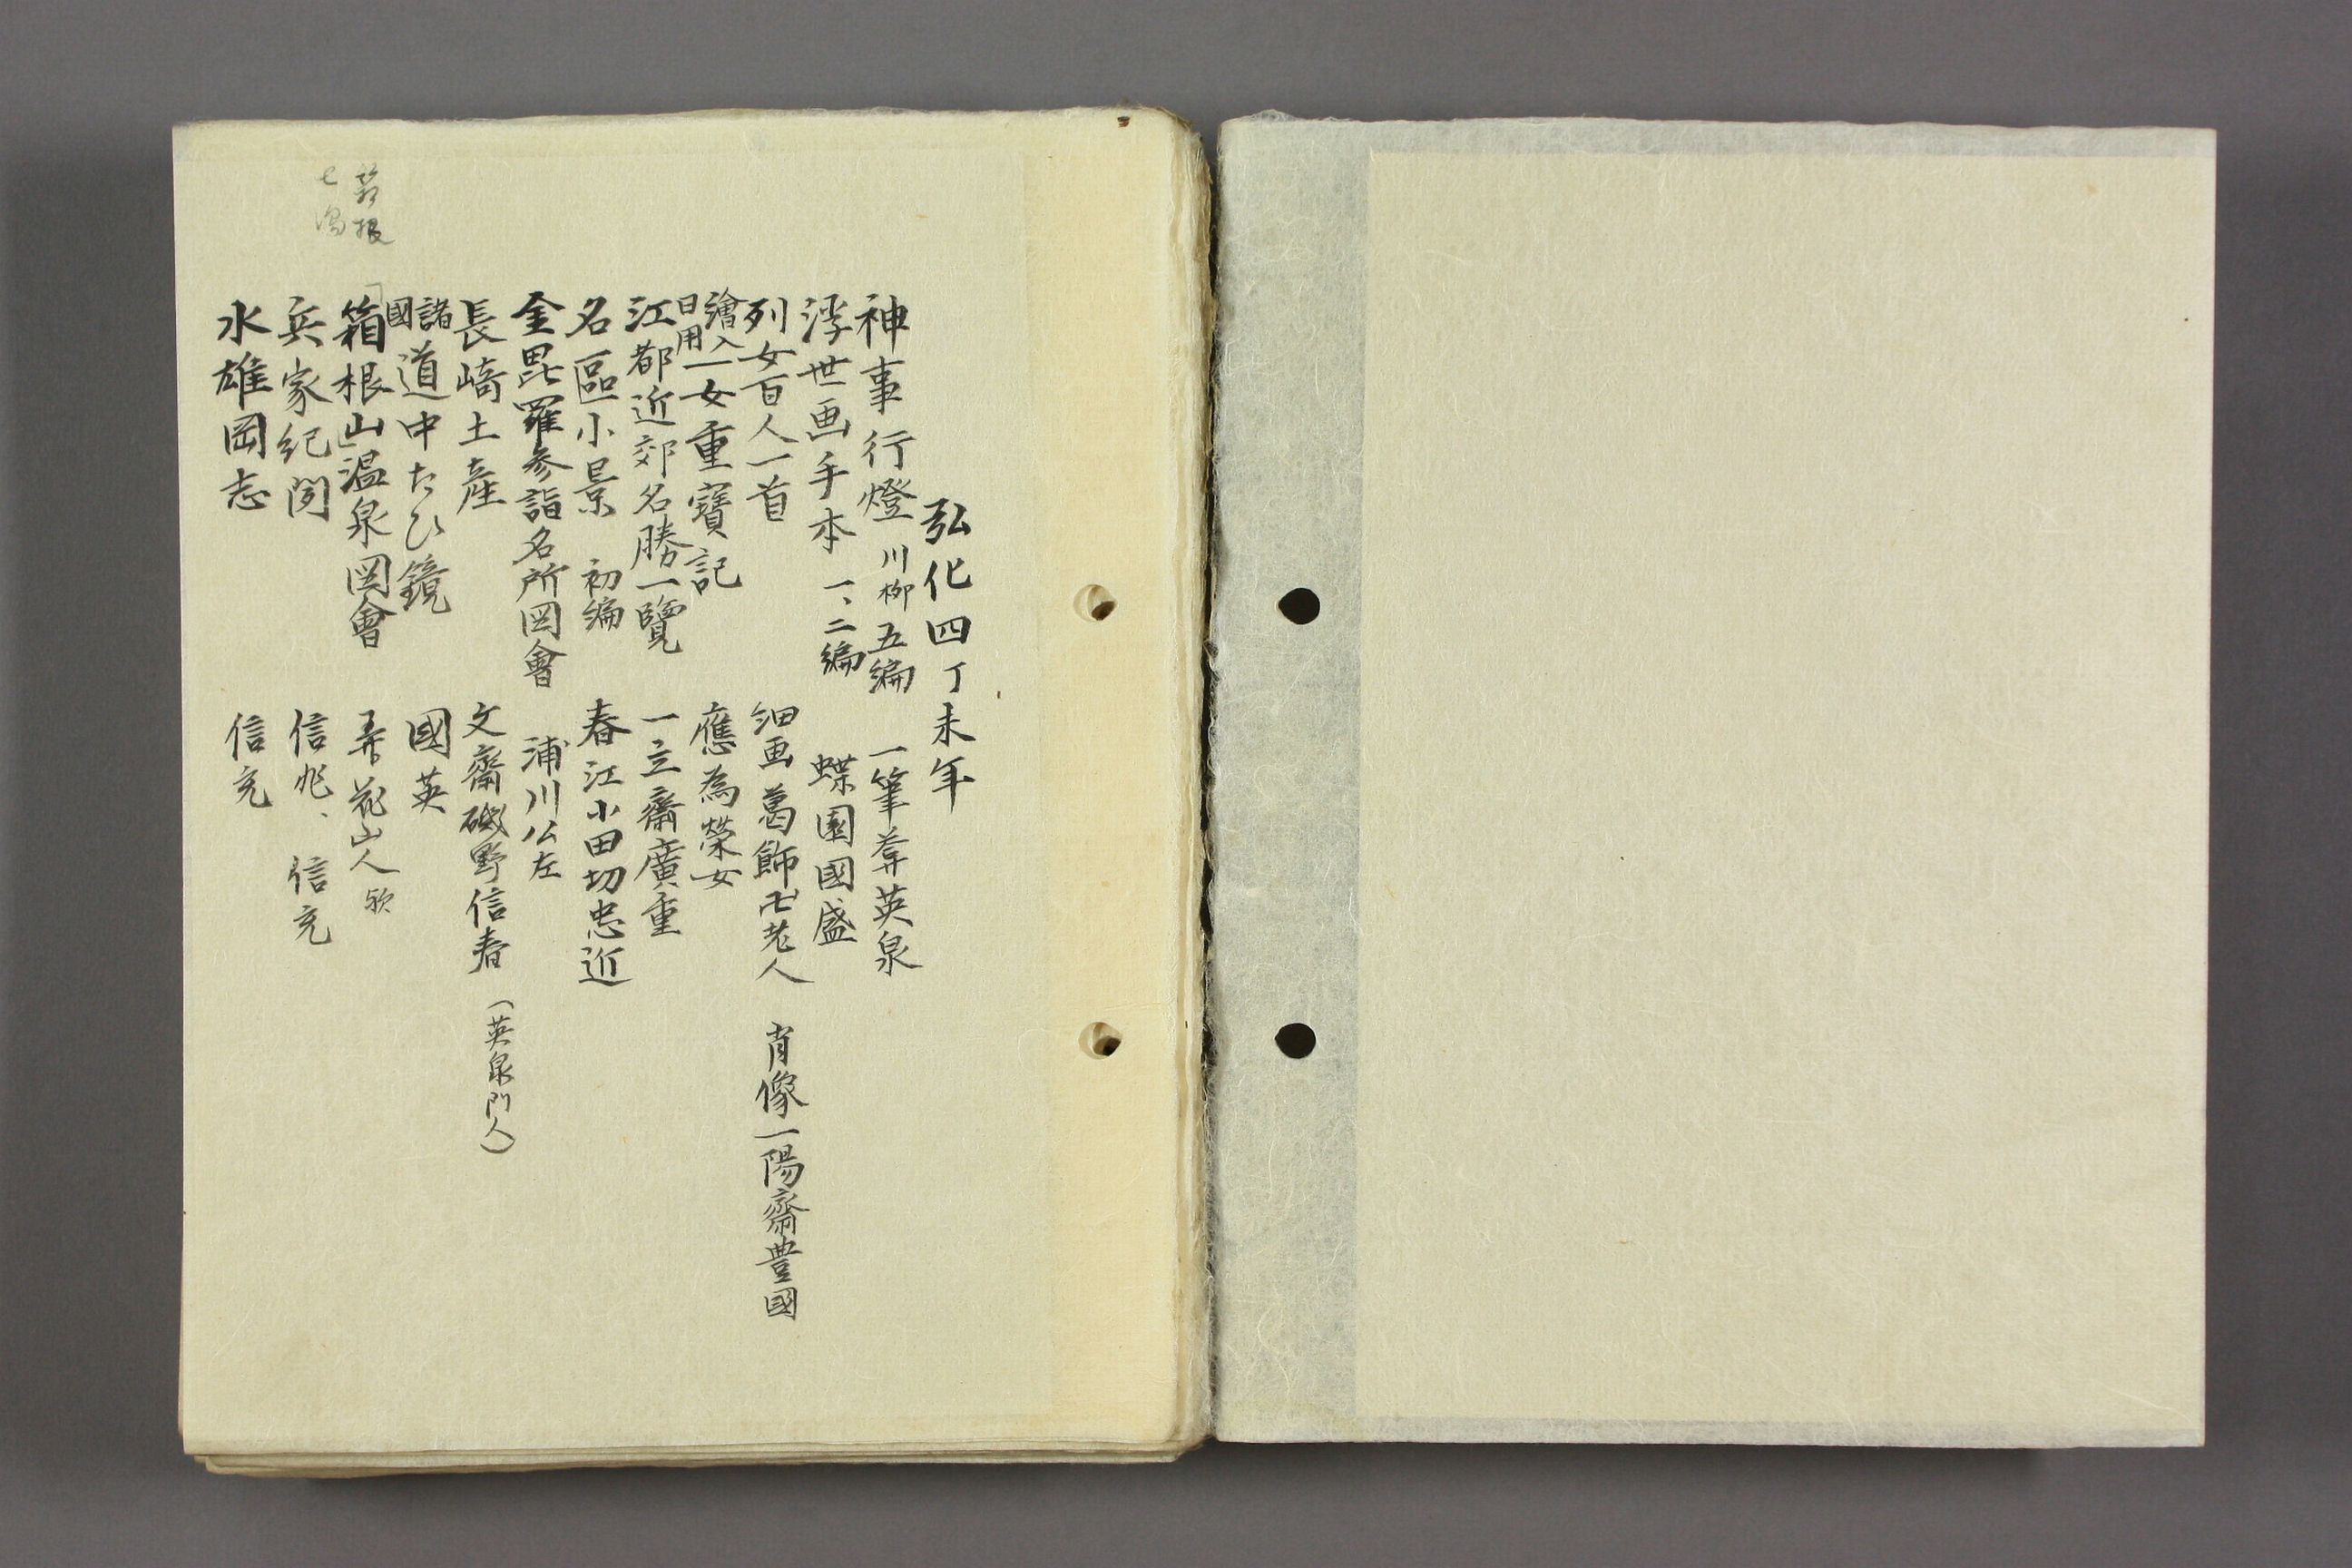 弘化四丁未年
神事行燈 川柳 五編 一筆菴英泉
浮世画手本 一、二編 蝶園國盛
列女百人一首 細画 葛飾卍老人 肖像一陽齋豊國
繪入日用 女重寶記 應為榮女
江都近郊名勝一覽 一立齋廣重
名區小景 初編 春江小田切忠近
金毘羅参詣名所図會 浦川公左
長崎土産 文齋磯野信春 (英泉門人)
諸國道中たひ鏡 國英
「箱根山」温泉図會 弄花山人 欤
兵家紀聞 信兆、信充
水雄岡志 信充
箱根
七湯